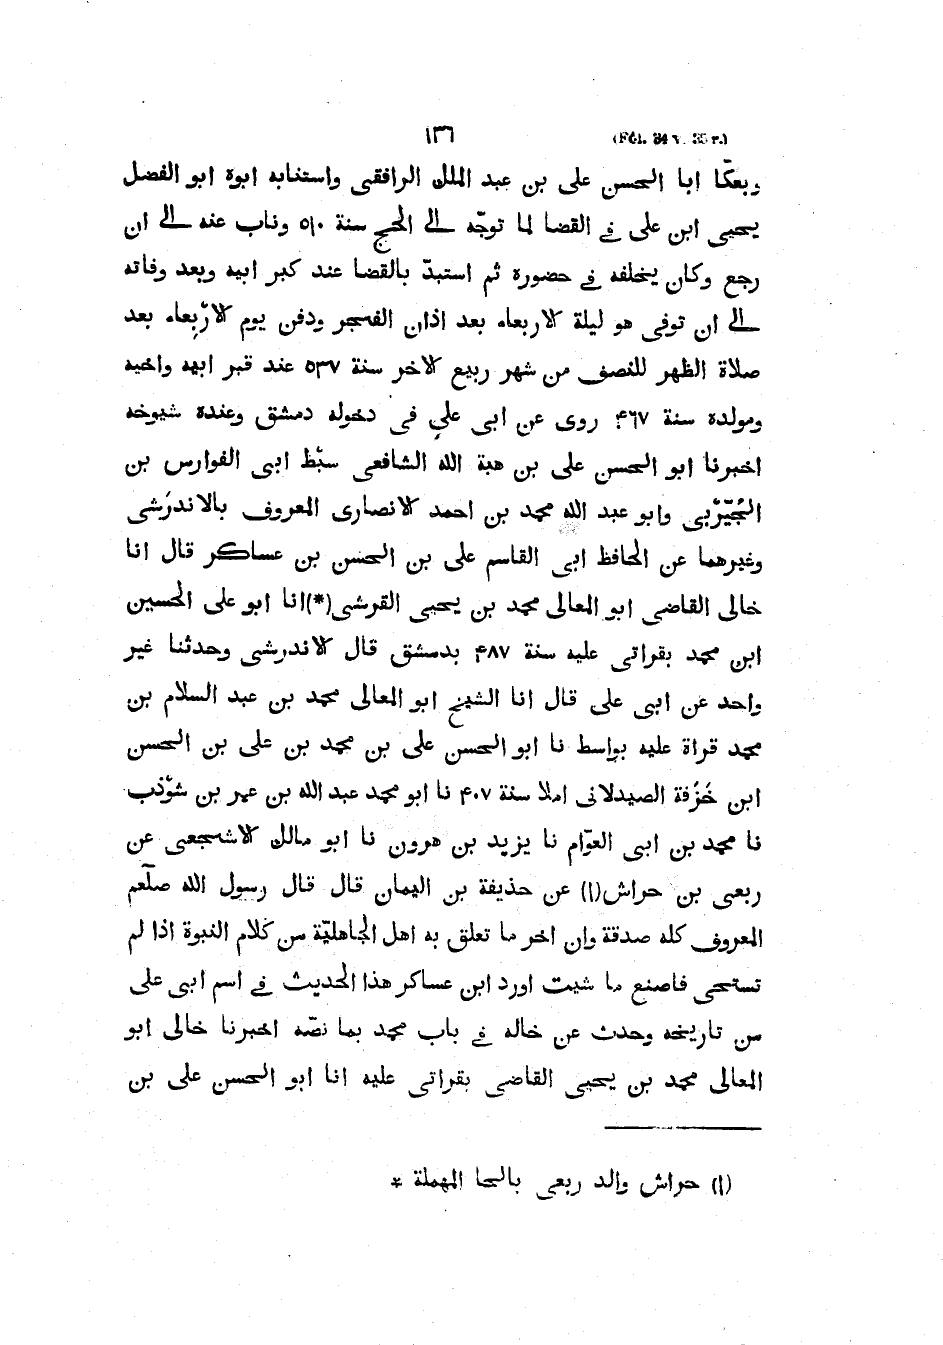 (Fol. 34 v. 35 r.) ١٣٦
وبعكّا ابا الحسن على بن عبد الملك الرافقى واستنابه ابوه ابو الفضل
يحيى ابن على فى القضا لما توجّه الى الحج سنة ٥١٠ وناب عنه الى ان
رجع وكان يخلفه فى حضوره ثم استبدّ بالقضا عند كبر ابيه وبعد وفاته
الى ان توفى هو ليلة الاربعاء بعد اذان الفجر ودفن يوم الاربعاء بعد
صلاة الظهر للنصف من شهر ربيع الاخر سنة ٥٣٧ عند قبر ابيه واخيه
ومولده سنة ۴٦٧ روى عن ابى على فى دخوله دمشق وعنده شيوخه
اخبرنا ابو الحسن على بن هبة الله الشافعى سبْط ابى الفوارس بن
الجُمّيْزى وابو عبد الله محمد بن احمد الانصارى المعروف بالاندرَشى
وغيرهما عن الحافظ ابى القاسم على بن الحسن بن عساكر قال انا
خالى القاضى ابو المعالى محمد بن يحيى القرشى(*)انا ابو على الحسين
ابن محمد بقراتى عليه سنة ۴٨٧ بدمشق قال الاندرشى وحدثنا غير
واحد عن ابى على قال انا الشيخ ابو المعالى محمد بن عبد السلام بن
محمد قراة عليه بواسط نا ابو الحسن على بن محمد بن على بن الحسن
ابن خَزَفة الصيدلانى املا سنة ۴٠٧ نا ابو محمد عبد الله بن عمر بن شوْذب
نا محمد بن ابى العوّام نا يزيد بن هرون نا ابو مالك الاشجعى عن
ربعى بن حراش(١) عن حذيفة بن اليمان قال قال رسول الله صلّعم
المعروف كله صدقة وان اخر ما تعلق به اهل الجاهليّة من كلام النبوة اذا لم
تستحى فاصنع ما شيت اورد ابن عساكر هذا الحديث فى اسم ابى على
من تاريخه وحدث عن خاله فى باب محمد بما نصّه اخبرنا خالى ابو
المعالى محمد بن يحيى القاضى بقراتى عليه انا ابو الحسن على بن
(١) حراش والد ربعى بالحا المهملة *